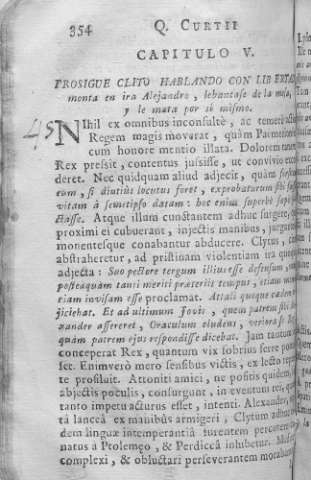 354
Q. CURTII
CAPITULO V.
PROSIGUE CLITO HABLANDO CON LIBERTAD,
monta en ira Alejandro, lebantase de la mesa,
y le mata por sì mismo.
45
NIhil ex omnibus inconsultè, ac temerè acto
Regem magis moverat, quàm Parmenionis
cum honore mentio illata. Dolorem tamen
Rex pressit, contentus jussisse, ut convivio
deret. Nec quidquam aliud adjecit, quàm
eum, si diutiùs locutus foret, exprobaturum sibi
vitam à semetipso datam: hoc enim superbè
ctasse. Atque illum cunctantem adhuc surgere,
proximi ei cubuerant, injectis manibus, jurgan
monentesque conabantur abducere. Clytus, cùm
abstraheretur, ad pristinam violentiam ira
adjecta: Suo pectore tergum illius esse defensum,
posteaquàm tanti meriti præteriit tempus, etiam
riam invisam esse proclamat. Attali quoque
jiciebat. Et ad ultimum Jovis, quem patrem sibi
xander assereret, Oraculum eludens, veriora
quàm patrem ejus respondisse dicebat. Jam tantum
conceperat Rex, quantum vix sobrius ferre
set. Enimverò mero sensibus victis, ex lecto
tè prosiluit. Attoniti amici, ne positis quidem,
abjectis poculis, consurgunt, in eventum rei,
tanto impetu acturus esset, intenti. Alexander,
tâ lanceâ ex manibus armigeri, Clytum adhuc
dem linguæ intemperantiâ furentem
natus à Ptolemæo, & Perdiccâ inhibetur.
complexi, & obluctari perseverantem